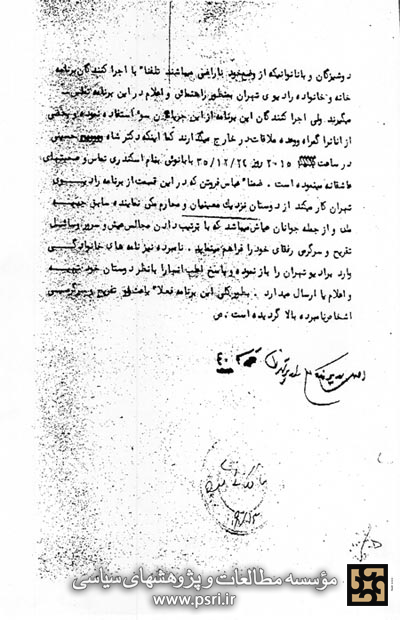 دوشیزگان و بانوانیکه از وضع خود ناراضی میباشند تلفنا" با اجرا کنندگان برنامه
خانه و خانواده رادیوی تهران بمنظور راهنمائی و اعلام در این برنامه تماس
میگیرند ولی اجرا کنندگان این برنامه از این جریان سوء استفاده نموده و بعضی
از آنانرا گمراه و وعده ملاقات در خارج میگذارند کما اینکه دکتر شاه حسینی
در ساعت ۲۰۱۵ روز ۳۵/۱۲/۲۴ با بانوئی بنام اسکندری تماس و صحبتهای
عاشقانه مینموده است . ضمنا" عباس فروتن که در این قسمت از برنامه رادیوی
تهران کار میکند از دوستان نزدیک معینیان و مصارم مکی نماینده سابق جبهه
ملی و از جمله جوانان عیاش میباشد که با ترتیب دادن مجالس عیش و سرور وسائل
تفریح و سرگرمی رفقای خود را فراهم مینماید . نامبرده نیز نامه های خانوادگی
وارد برادیو تهران را باز نموده و پاسخ اغلب آنها را با نظر دوستان خود تهیه
و اعلام یا ارسال میدارد . بطور کلی این برنامه فعلا" باعث تفریح و سرگرمی
اشخاص نامبرده بالا گردیده است . ص
مؤسسه مطالعات و پژوهشهای سیاسی
www.psri.ir